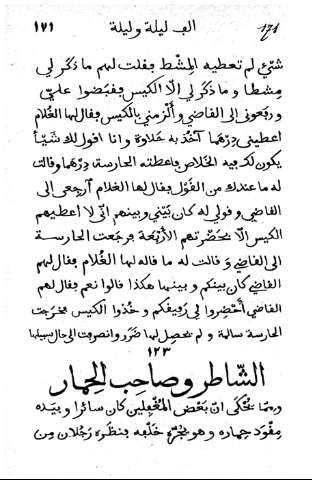 ١٧١ الف ليلة وليلة 171
شئ لم تعطيه المِشط فقلت لهم ما ذكر لي
مِشطا و ما ذكر لي الّا الكيس فقبضوا عليّ
ورفعوني الى القاضي و ألزمني بالكيس فقال لها الغُلام
اعطيني دِرهَما آخُذ به حَلاوة و انا اقول لك شَيْأ
يكون لك فيه الخَلاص فاعطته الحارسة دِرهَما و قالت
له ما عندك من القَوْل فقال لها الغلام أرجعى الى
القاضي و قولي له كان بَيْني وبينهم انّى لا اعطيهم
الكيس الّا بحَضْرتهم الأَرْبَعة فرجَعت الحارسة
الى القاضي و قالت له ما قاله لها الغُلام فقال لهم
القاضي كان بينكم و بينهما هكذا قالوا نعم فقال لهم
القاضي أَحْضِروا لي رَفيقكم و خُذوا الكيس فخرجت
الحارسة سالمة و لم يحصل لها ضَرَر وانصرفت الى حال سبيلها
١٢٣
الشّاطر و صاحب الحِمار
و ممّا يُحْكَى انّ بَعْض المُغفَّلين كان سائرا و بيَده
مِقْوَد حِماره و هو يجُرّه خَلْفه فنظَره رَجُلان من